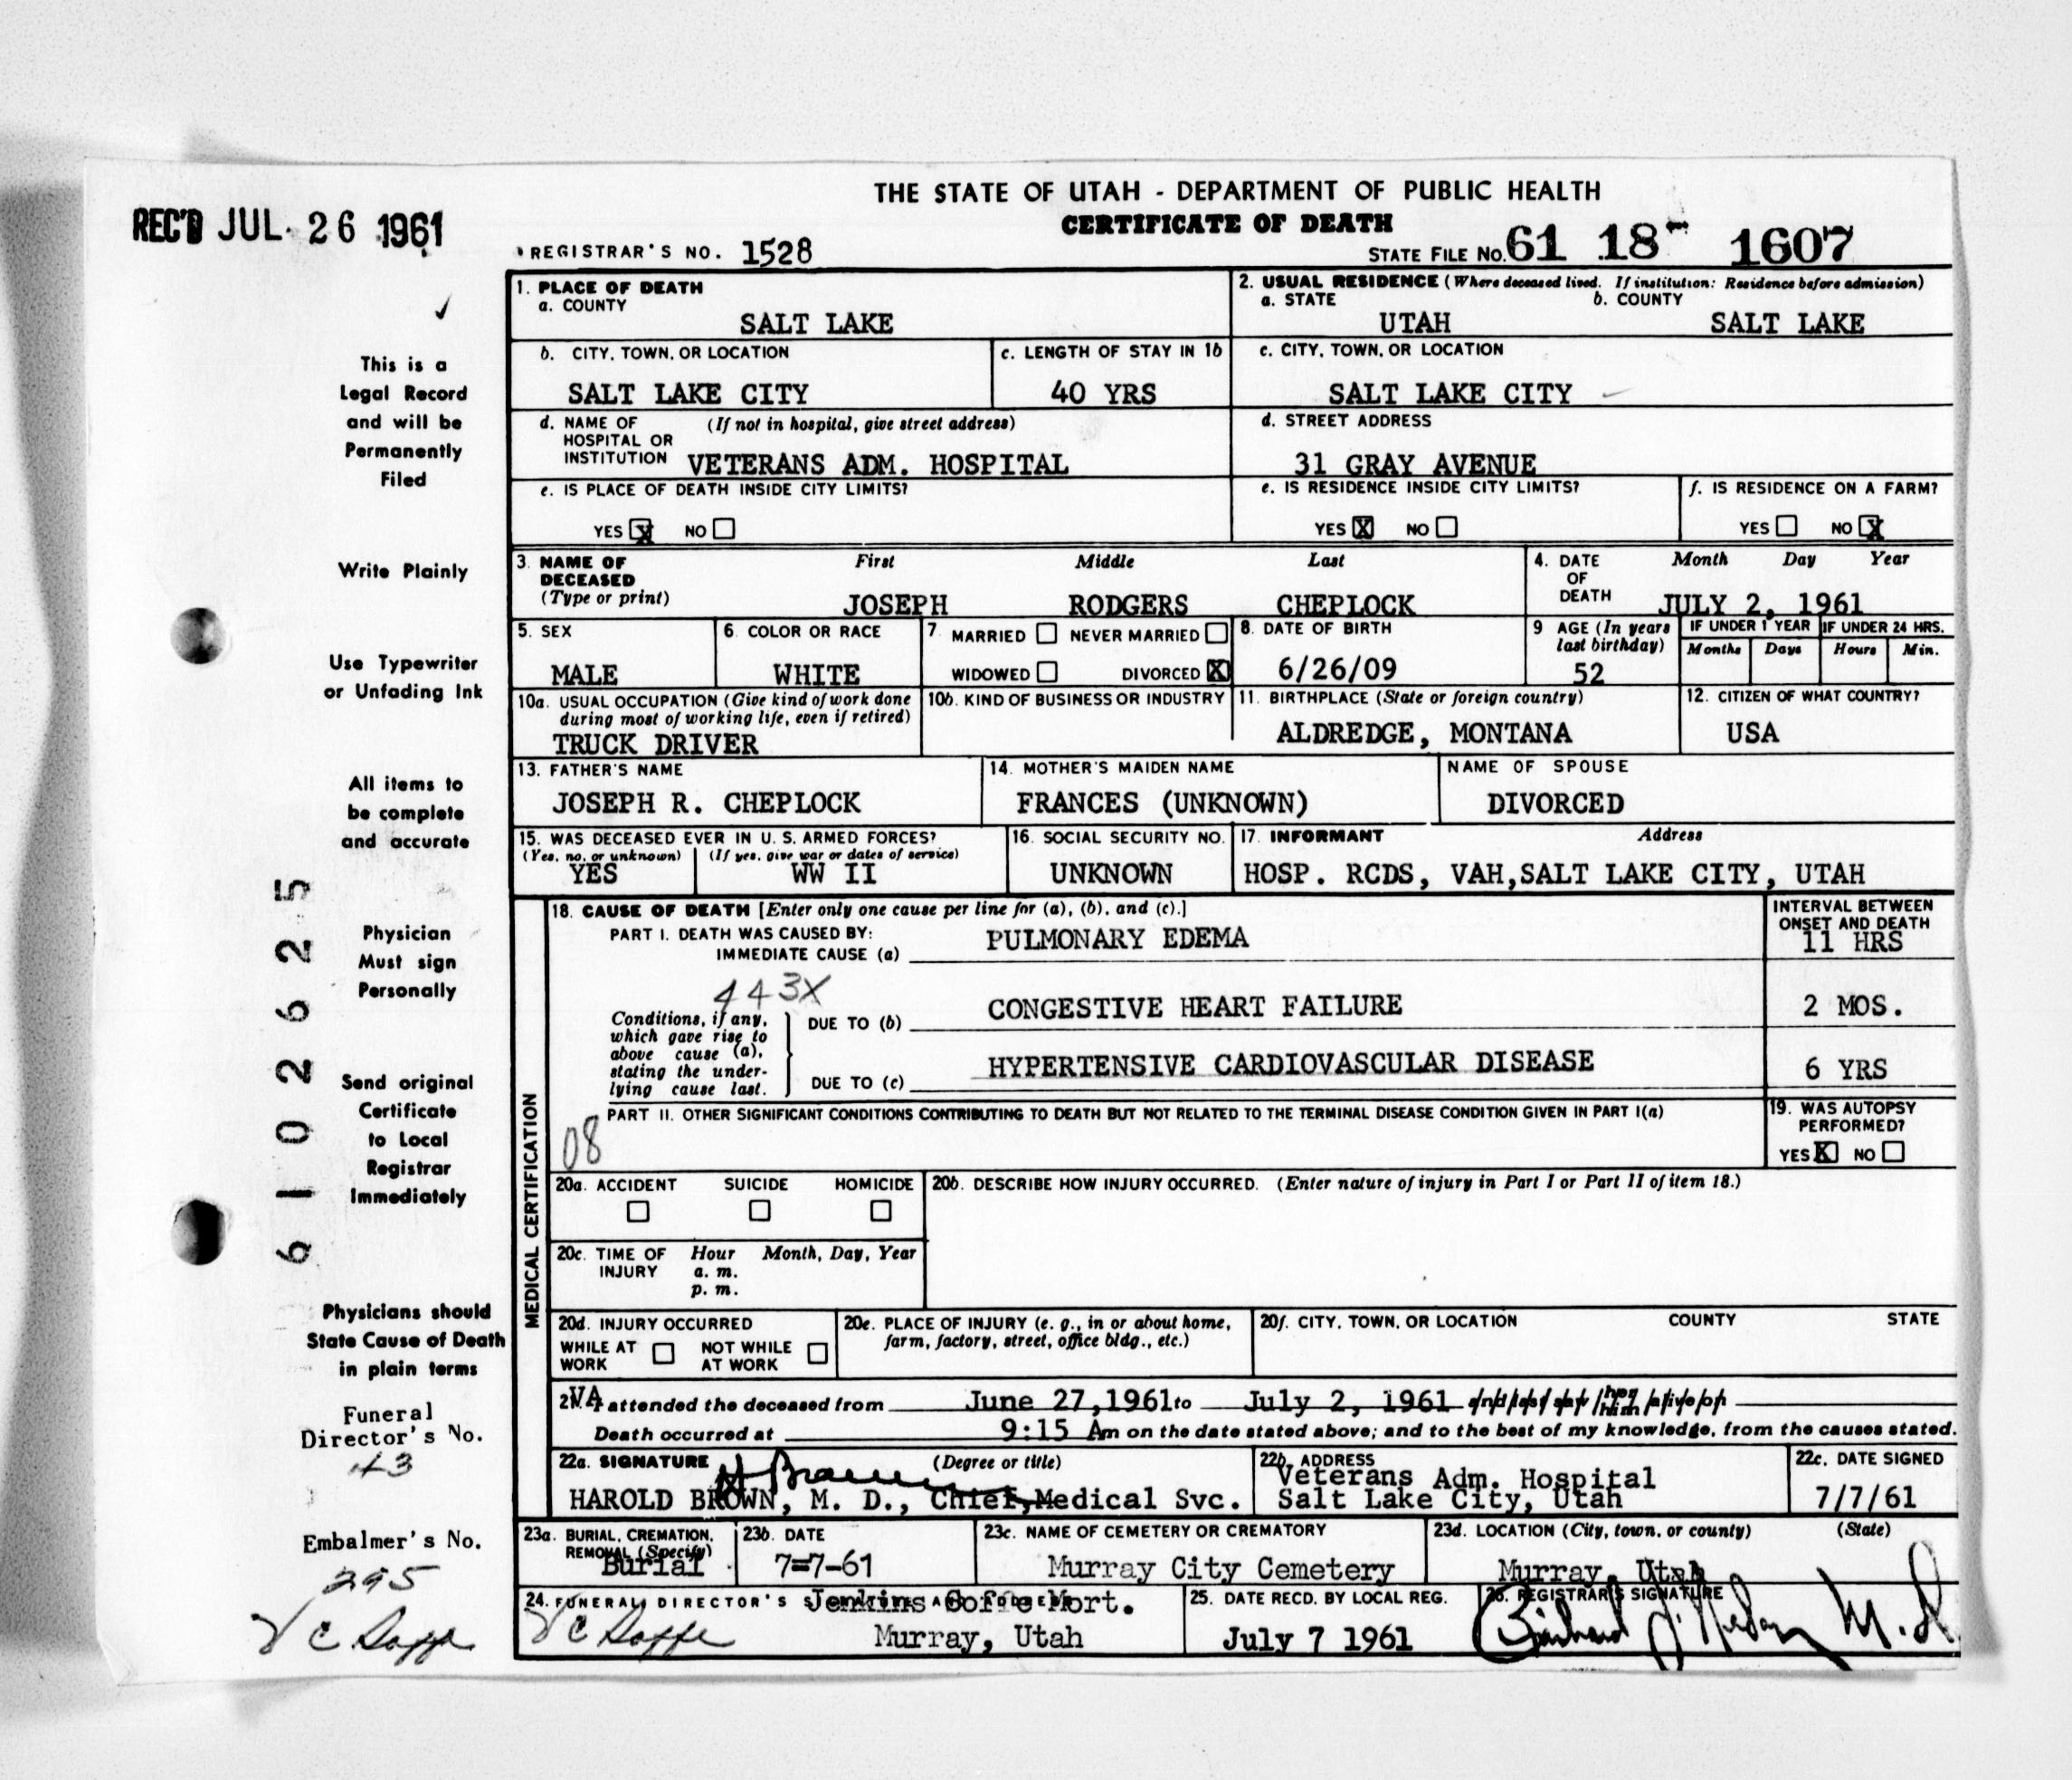 THE STATE OF UTAH - DEPARTMENT OF PUBLIC HEALTH
REC'D JUL 26 1961
CERTIFICATE OF DEATH
REGISTRAR'S NO. 1528
STATE FILE NO. 61 18 1607
This is a
Legal Record
and will be
Permanently
Filed
Write Plainly
Use Typewriter
or Unfading Ink
All items to
be complete
and accurate
Physician
Must sign
Personally
Send original
Certificate
to Local
Registrar
Immediately
Physicians should
State Cause of Death
in plain terms
Funeral
Director's No.
43
Embalmer's No.
295
6102625
1. PLACE OF DEATH
a. COUNTY
SALT LAKE
2. USUAL RESIDENCE (Where deceased lived. If institution: Residence before admission)
a. STATE b. COUNTY
UTAH SALT LAKE
b. CITY, TOWN, OR LOCATION
SALT LAKE CITY
c. LENGTH OF STAY IN 1b
40 YRS
c. CITY, TOWN, OR LOCATION
SALT LAKE CITY
d. NAME OF (If not in hospital, give street address)
HOSPITAL OR
INSTITUTION VETERANS ADM. HOSPITAL
d. STREET ADDRESS
31 GRAY AVENUE
e. IS PLACE OF DEATH INSIDE CITY LIMITS?
YES X NO
e. IS RESIDENCE INSIDE CITY LIMITS?
YES X NO
f. IS RESIDENCE ON A FARM?
YES NO X
3. NAME OF First Middle Last
DECEASED
(Type or print) JOSEPH RODGERS CHEPLOCK
4. DATE Month Day Year
OF
DEATH JULY 2, 1961
5. SEX
MALE
6. COLOR OR RACE
WHITE
7. MARRIED NEVER MARRIED
WIDOWED DIVORCED X
8. DATE OF BIRTH
6/26/09
9 AGE (In years
last birthday)
52
IF UNDER 1 YEAR IF UNDER 24 HRS.
Months Days Hours Min.
10a. USUAL OCCUPATION (Give kind of work done
during most of working life, even if retired)
TRUCK DRIVER
10b. KIND OF BUSINESS OR INDUSTRY
11. BIRTHPLACE (State or foreign country)
ALDREDGE, MONTANA
12. CITIZEN OF WHAT COUNTRY?
USA
13. FATHER'S NAME
JOSEPH R. CHEPLOCK
14. MOTHER'S MAIDEN NAME
FRANCES (UNKNOWN)
NAME OF SPOUSE
DIVORCED
15. WAS DECEASED EVER IN U. S. ARMED FORCES?
(Yes, no, or unknown) (If yes, give war or dates of service)
YES WW II
16. SOCIAL SECURITY NO.
UNKNOWN
17. INFORMANT Address
HOSP. RCDS, VAH,SALT LAKE CITY, UTAH
MEDICAL CERTIFICATION
18. CAUSE OF DEATH [Enter only one cause per line for (a), (b), and (c).]
PART I. DEATH WAS CAUSED BY:
IMMEDIATE CAUSE (a) PULMONARY EDEMA
INTERVAL BETWEEN
ONSET AND DEATH
11 HRS
443X
Conditions, if any,
which gave rise to
above cause (a),
stating the under-
lying cause last.
DUE TO (b) CONGESTIVE HEART FAILURE 2 MOS.
DUE TO (c) HYPERTENSIVE CARDIOVASCULAR DISEASE 6 YRS
PART II. OTHER SIGNIFICANT CONDITIONS CONTRIBUTING TO DEATH BUT NOT RELATED TO THE TERMINAL DISEASE CONDITION GIVEN IN PART I(a)
08
19. WAS AUTOPSY
PERFORMED?
YES X NO
20a. ACCIDENT SUICIDE HOMICIDE
20b. DESCRIBE HOW INJURY OCCURRED. (Enter nature of injury in Part I or Part II of item 18.)
20c. TIME OF Hour Month, Day, Year
INJURY a. m.
p. m.
20d. INJURY OCCURRED
WHILE AT NOT WHILE
WORK AT WORK
20e. PLACE OF INJURY (e. g., in or about home,
farm, factory, street, office bldg., etc.)
20f. CITY, TOWN, OR LOCATION COUNTY STATE
VA attended the deceased from June 27,1961 to July 2, 1961
Death occurred at 9:15 Am on the date stated above; and to the best of my knowledge, from the causes stated.
22a. SIGNATURE (Degree or title)
H Brown
HAROLD BROWN, M. D., Chief,Medical Svc.
22b. ADDRESS
Veterans Adm. Hospital
Salt Lake City, Utah
22c. DATE SIGNED
7/7/61
23a. BURIAL, CREMATION,
REMOVAL (Specify)
Burial
23b. DATE
7=7-61
23c. NAME OF CEMETERY OR CREMATORY
Murray City Cemetery
23d. LOCATION (City, town, or county) (State)
Murray, Utah
24. FUNERAL DIRECTOR'S
Mort.
Murray, Utah
25. DATE RECD. BY LOCAL REG.
July 7 1961
26. REGISTRAR'S SIGNATURE